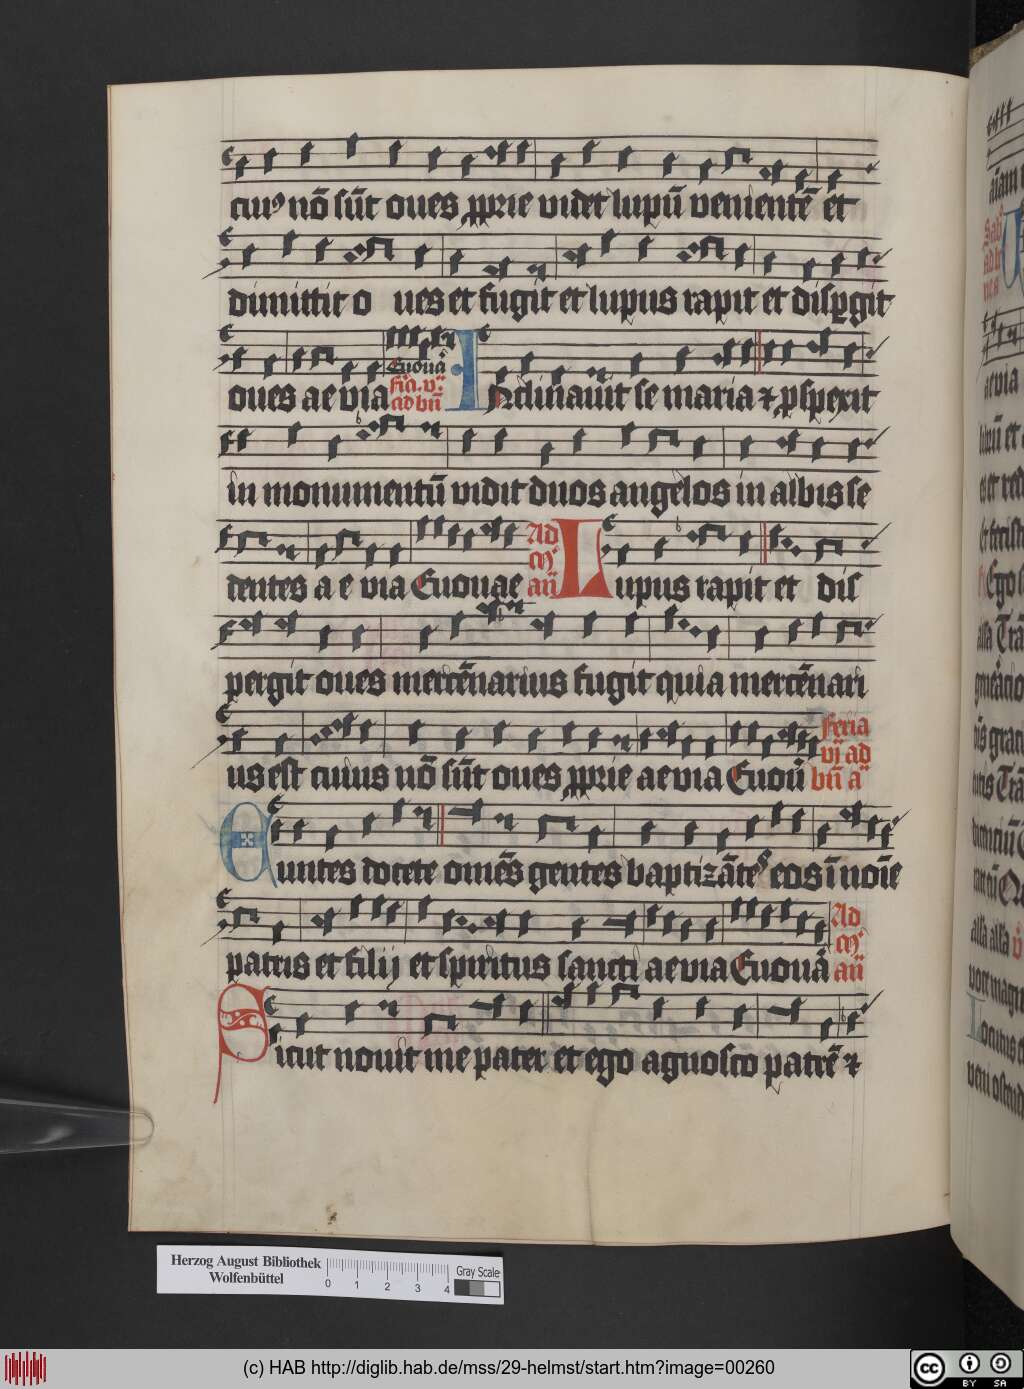 cui⁹ nō sūt oues ꝓprie videt lupū venientē et
dimittit o ues et fugit et lupus rapit et disꝑgit
oues aevia Euouā fia. v. ad bn̄ Inclinauit se maria ⁊ ꝓspexit
in monumentū vidit duos angelos in albis se
dentes a e via Euouae Ad m̄ an̄ Lupus rapit et dis
pergit oues mercēnarius fugit quia mercēnari
us est cuius nō sūt oues ꝓprie aevia Euoū Feria vj ad bn̄ a
Euntes docete omēs gentes baptizātes eos ī noīe
patris et filij et spiritus sancti aevia Euouā Ad m̄ an̄
Sicut nouit me pater et ego agnosco patrē ⁊
Herzog August Bibliothek
Wolfenbüttel
0 1 2 3 4
Gray Scale
(c) HAB http://diglib.hab.de/mss/29-helmst/start.htm?image=00260
cc BY SA